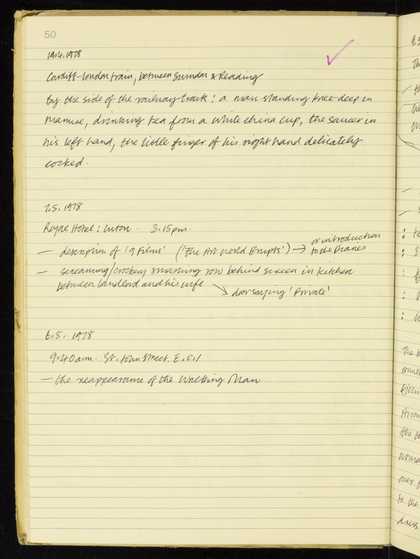 50
19.4.1978
Cardiff-London train, between Swindon & Reading
By the side of the railway track: a man standing knee deep in
manure, drinking tea from a white china cup, the saucer in
his left hand, the little finger of his right hand delicately
cocked.
2.5.1978
Royal Hotel: Luton. 3.15pm
— description of '9 Films' ('The Art World Erupts') → or introduction
to the Diaries
— screaming/crockery smashing row behind screen in kitchen
between landlord and his wife
→ door saying 'Private'
6.5.1978
9.40am. St. John Street. E.C.1
— the reappearance of the Walking Man